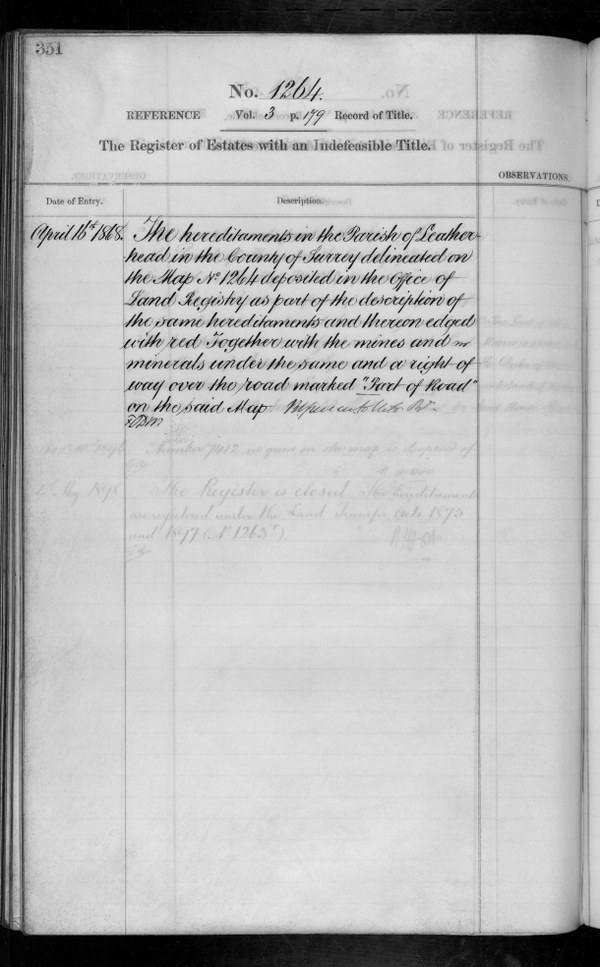 351
No. 1264.
REFERENCE Vol. 3 p. 179 Record of Title.
The Register of Estates with an Indefeasible Title.
OBSERVATIONS.
Date of Entry.
Description.
April 16th 1868.
The hereditaments in the Parish of Leather-
head in the County of Surrey delineated on
the Map No 1264 deposited in the Office of
Land Registry as part of the description of
the same hereditaments and thereon edged
with red Together with the mines and
minerals under the same and a right of
way over the road marked "Part of Road"
on the said Map
The Register is closed The hereditaments
are registered under the Land Transfer Acts 1875
and 1897 (No 1263).